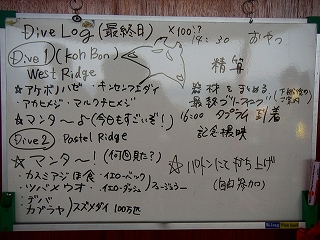 Dive Log (最終日)
×100!?
Dive 1 (Koh Bon)
West Ridge
☆アケボノハゼ・キンセンフエダイ
・アカヒメジ・マルクチヒメジ
☆マンタ～♪(今もすごいぞ!)
Dive 2 Pastel Ridge
☆マンタ～!(何回見た?)
・カスミアジ捕食・イエローバック
・ツバメウオ・イエローダッシュ
フュージュラー
・デバ
カブラヤ
スズメダイ 100万匹
14:30 おやつ
精算
器材をまとめる
最終ブリーフィング
16:00 タプラム 到着
記念撮影
☆パトンにて打ち上げ
(自由参加)